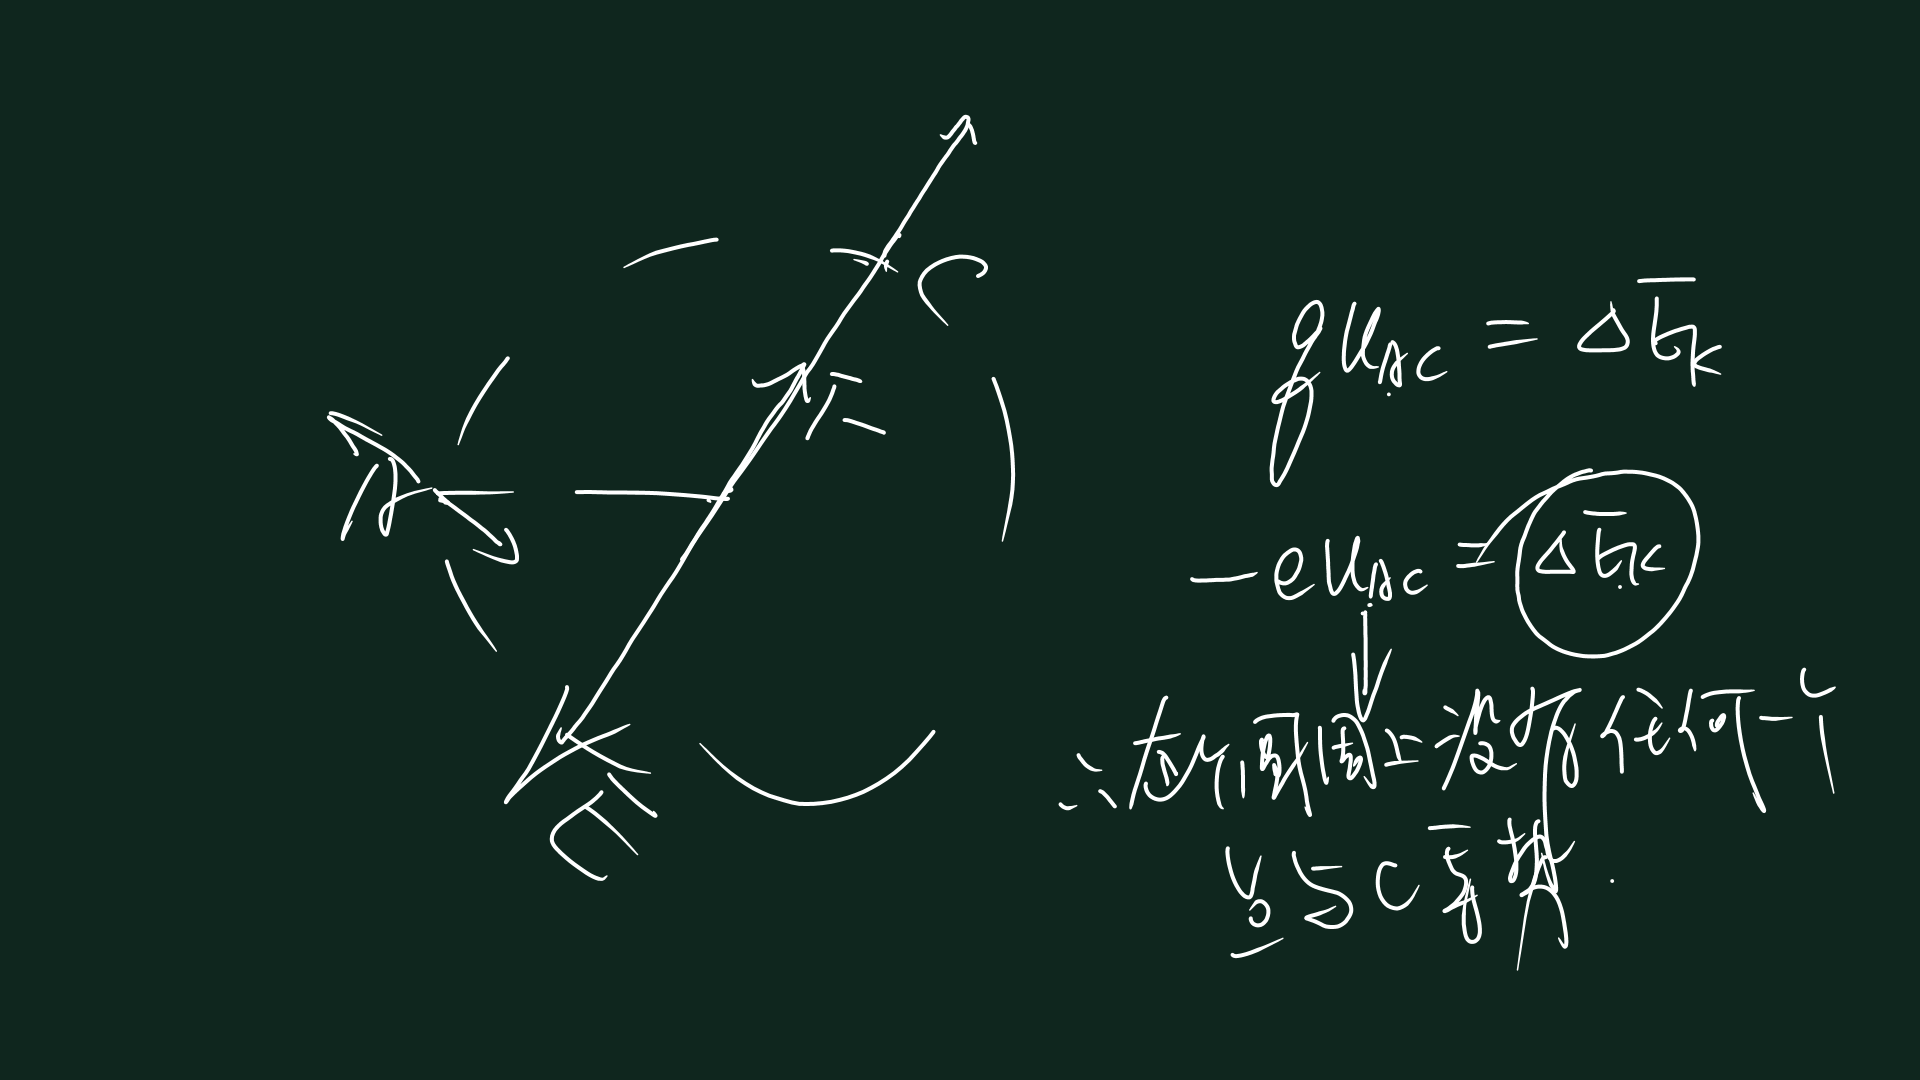 C
E
A
E
qU_AC = ΔE_k
-eU_AC = ΔE_k
∴在个圆周上没有任何一个
点与C等势.